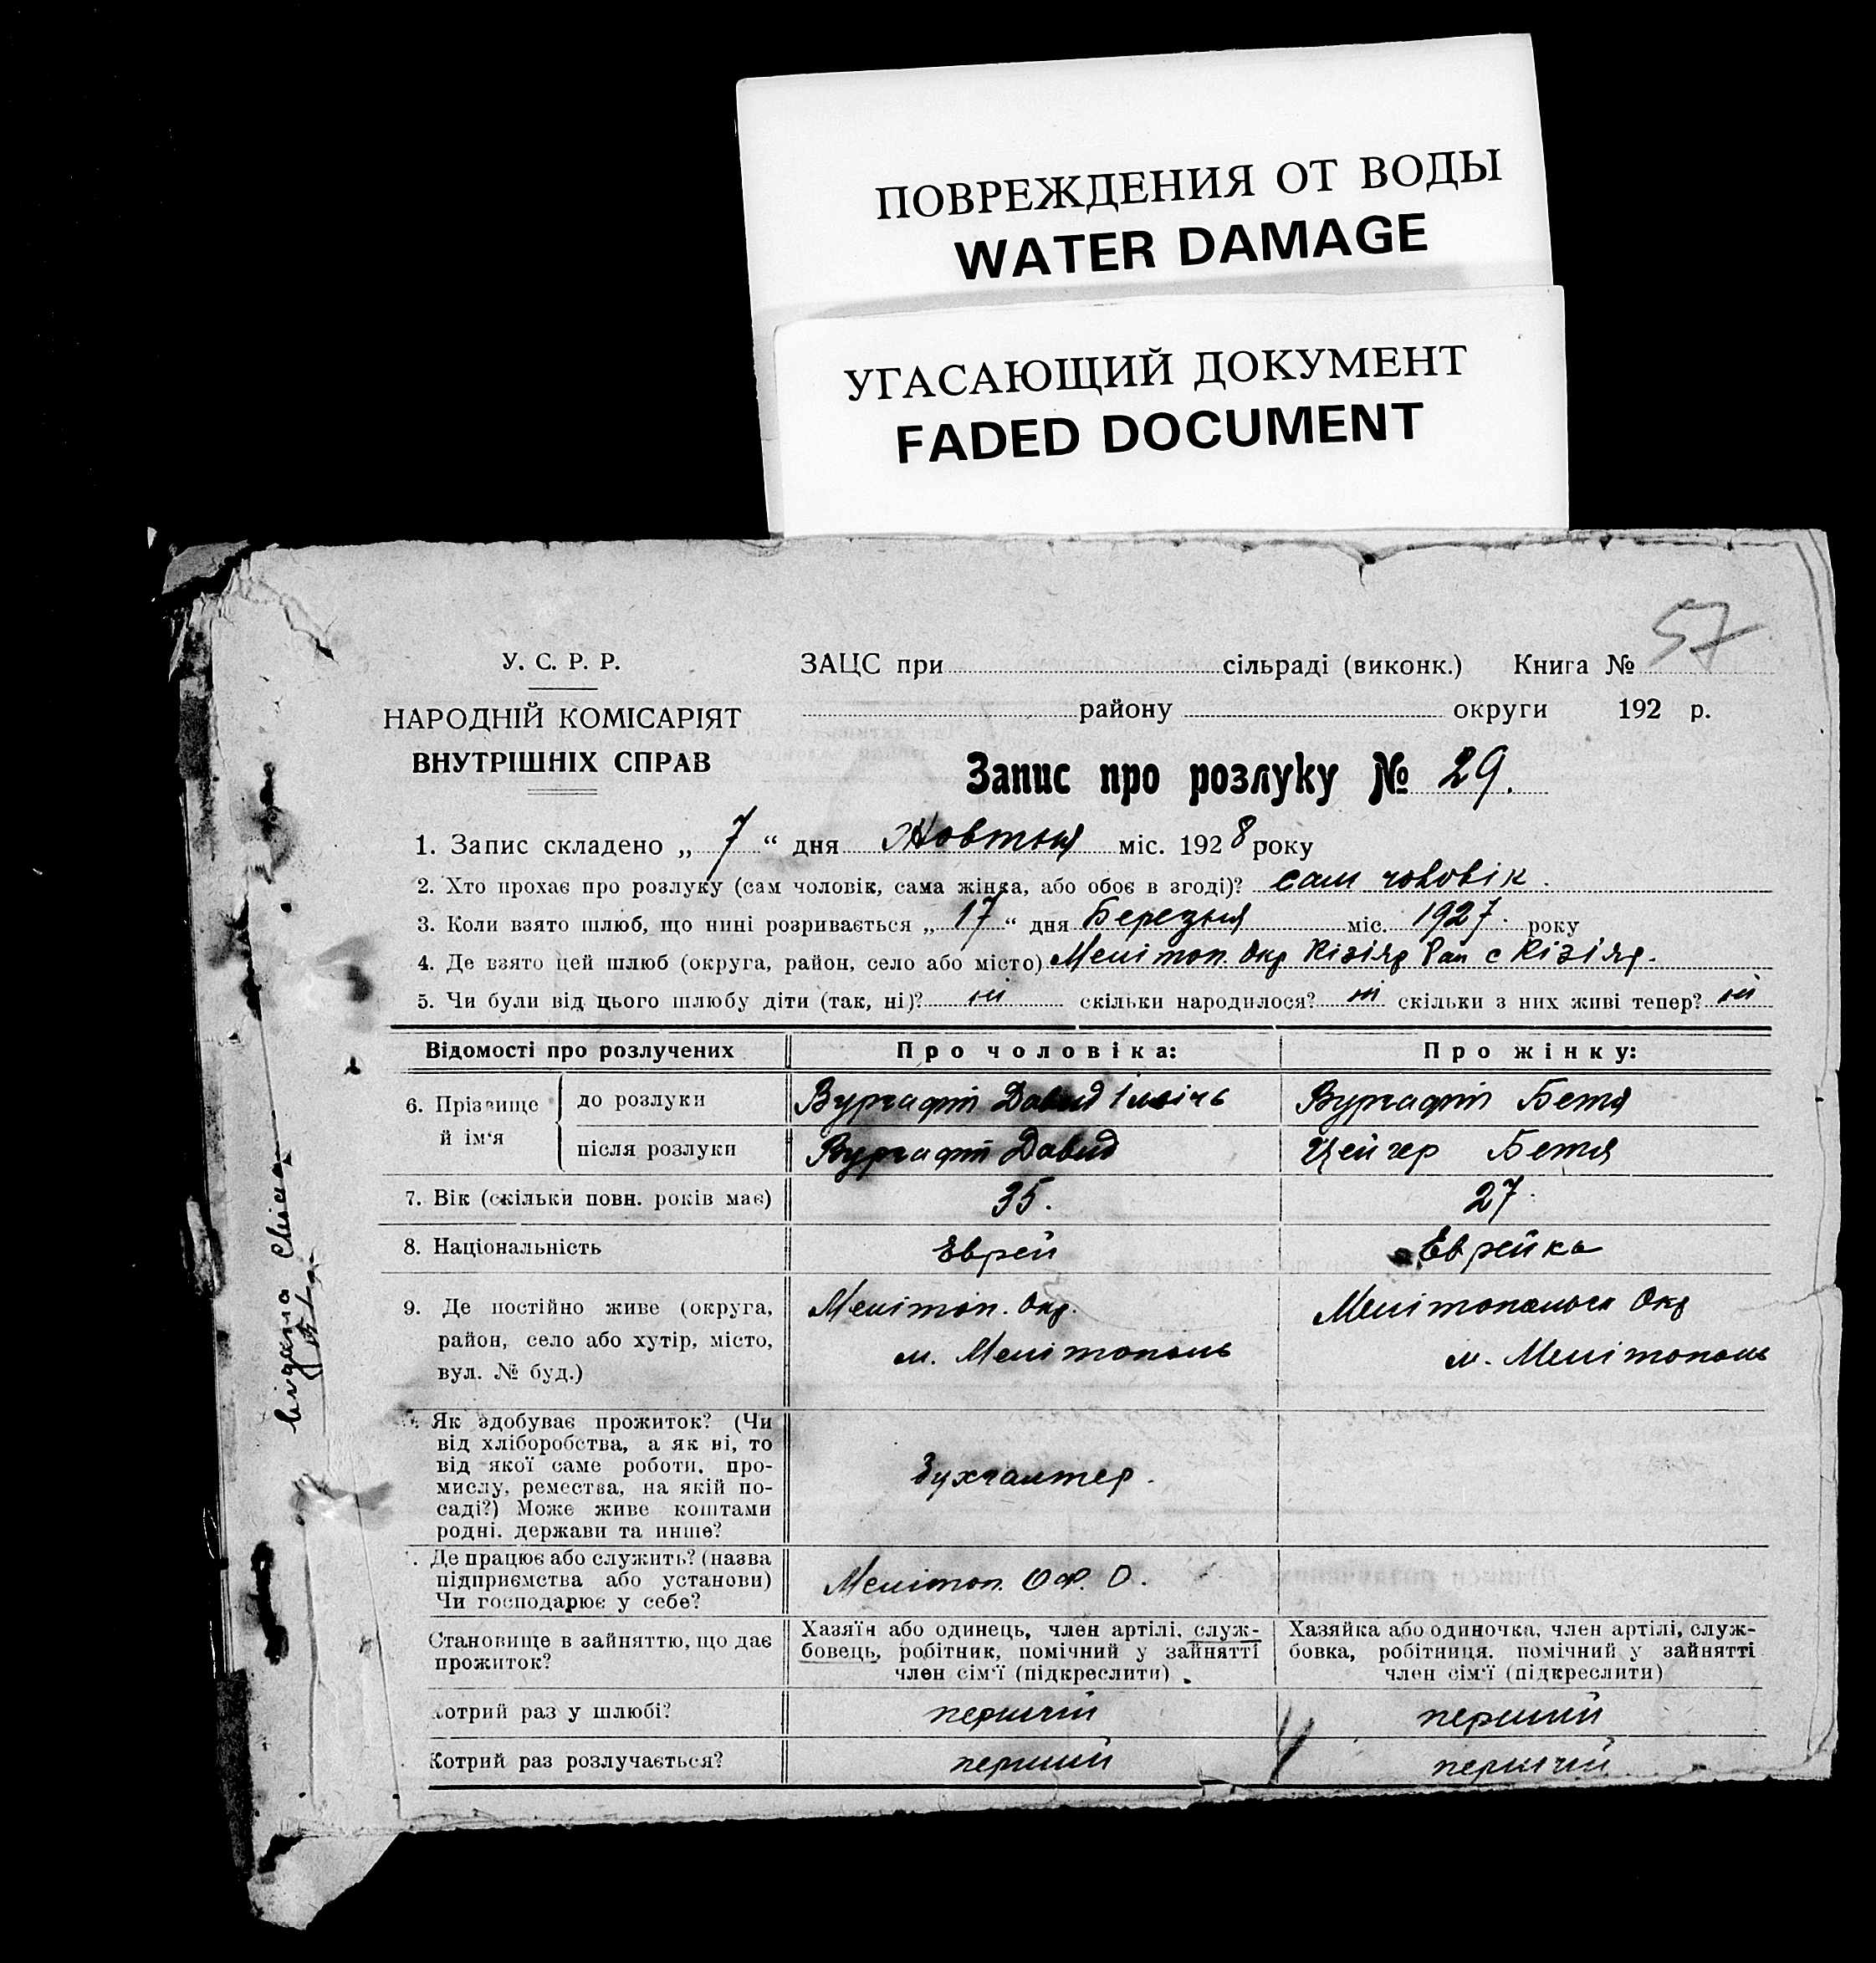 ПОВРЕЖДЕНИЯ ОТ ВОДЫ
WATER DAMAGE
УГАСАЮЩИЙ ДОКУМЕНТ
FADED DOCUMENT
57
У. С. Р. Р.
НАРОДНІЙ КОМІСАРІЯТ
ВНУТРІШНІХ СПРАВ
ЗАЦС при сільраді (виконк.) Книга №
району округи 192 р.
Запис про розлуку № 29.
1. Запис складено „ 7 “ дня Жовтня міс. 1928 року
2. Хто прохає про розлуку (сам чоловік, сама жінка, або обоє в згоді)? сам чоловік.
3. Коли взято шлюб, що нині розривається „ 17 “ дня Березня міс. 1927. року
4. Де взято цей шлюб (округа, район, село або місто) Мелітоп. Окр Кізіяр Рай с Кізіяр.
5. Чи були від цього шлюбу діти (так, ні)? ні скільки народилося? ні скільки з них живі тепер? ні
Відомості про розлучених Про чоловіка: Про жінку:
6. Прізвище й ім'я
до розлуки Вургафт Давид Ілліч Вургафт Бетя
після розлуки Вургафт Давид Цейгер Бетя
7. Вік (скільки повн. років має) 35. 27.
8. Національність Еврей Еврейка
9. Де постійно живе (округа, район, село або хутір, місто, вул. № буд.)
Мелітоп. Окр. м. Мелітополь
Мелітопольск Окр м. Мелітополь
Як здобуває прожиток? (Чи
від хліборобства, а як ні, то
від якої саме роботи, про-
мислу, ремества, на якій по-
саді?) Може живе коштами
родні. держави та инше?
Бухгалтер.
Де працює або служить? (назва
підприємства або установи)
Чи господарює у себе?
Мелітоп. О.Ф.О.
Становище в зайняттю, що дає
прожиток?
Хазяїн або одинець, член артілі, служ-
бовець, робітник, помічний у зайнятті
член сім'ї (підкреслити)
Хазяйка або одиночка, член артілі, служ-
бовка, робітниця, помічний у зайнятті
член сім'ї (підкреслити)
Котрий раз у шлюбі? перший перший
Котрий раз розлучається? перший перший